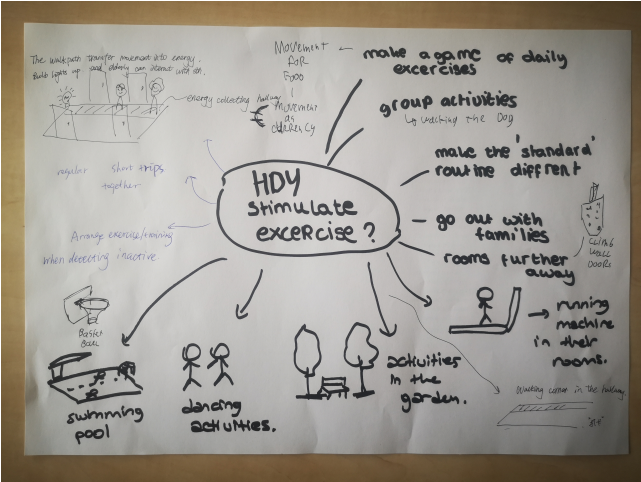 The walkpath transfer movement into energy.
Bulb lights up and elderly can interact with
energy collecting
Movement
FOR
Food
Movement
as
CURRENCY
make a game of daily
excercises
group activities
↳ walking the Dog
make the 'standard'
routine diffrent
go out with
families
rooms further
away
CLIMB
WALL
DOORS
regular short trips
together
Arrange exercise/training
when detecting inactive
HDY
stimulate
excercise?
Basket
Ball
swimming
pool
dancing
activities.
activities
in the
garden.
running
machine
in their
rooms.
Walking corner in the hallway